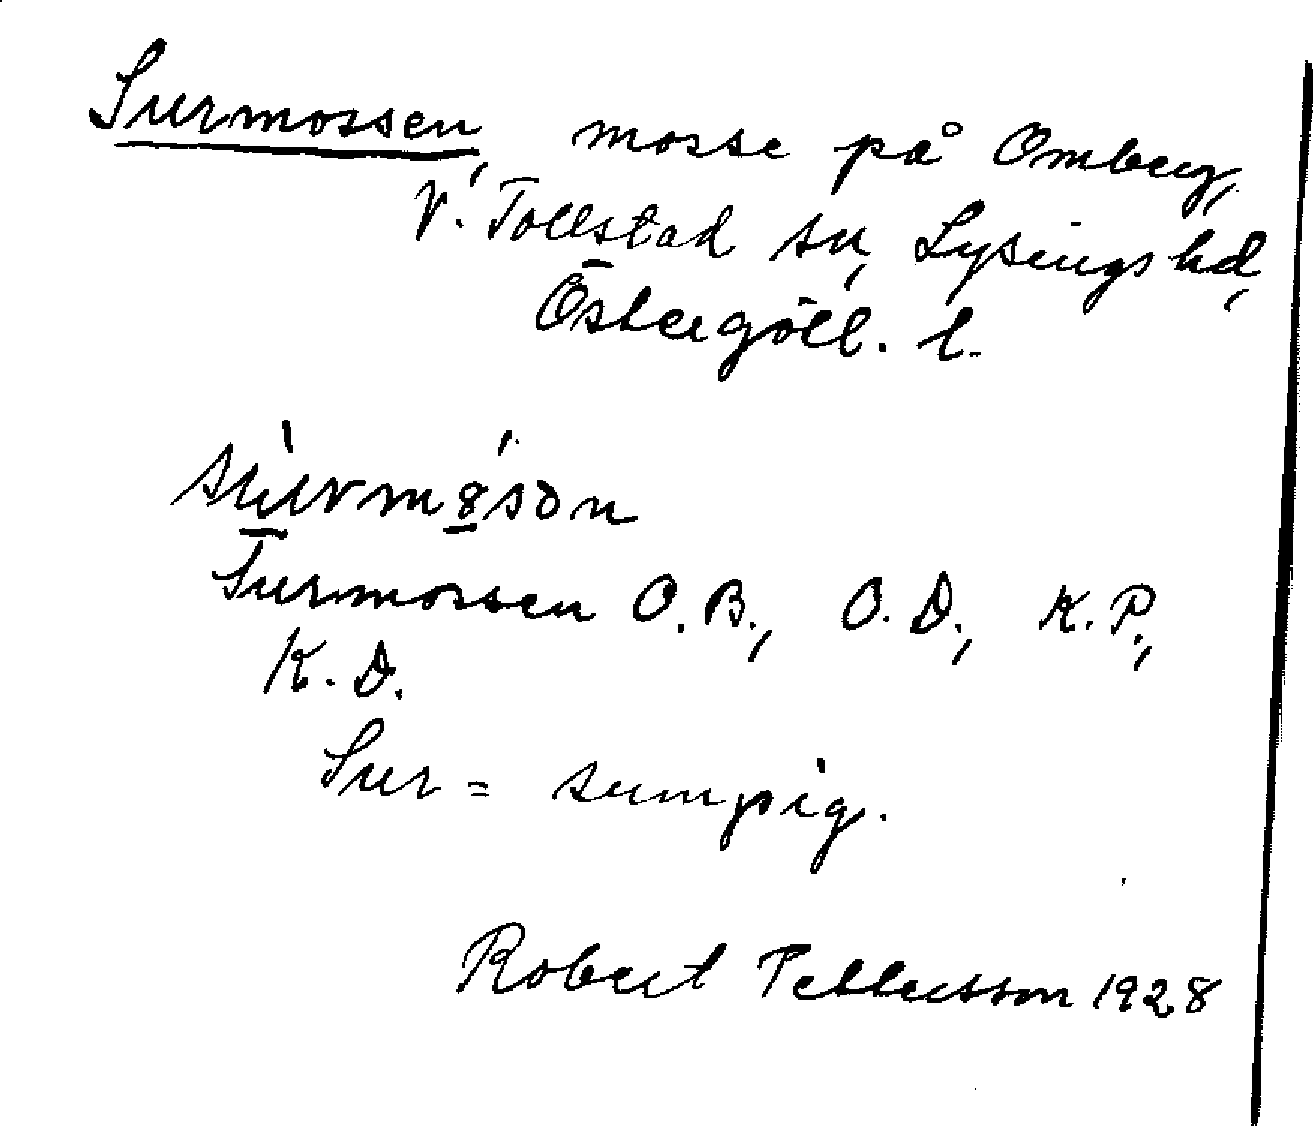 Surmossen, mosse på Omberg,
V. Tollstad sn, Lysings hd,
Östergötl. l.
Surmossen O.B., O.D., K.P.,
K.D.
Sur = sumpig.
Robert Pettersson 1928